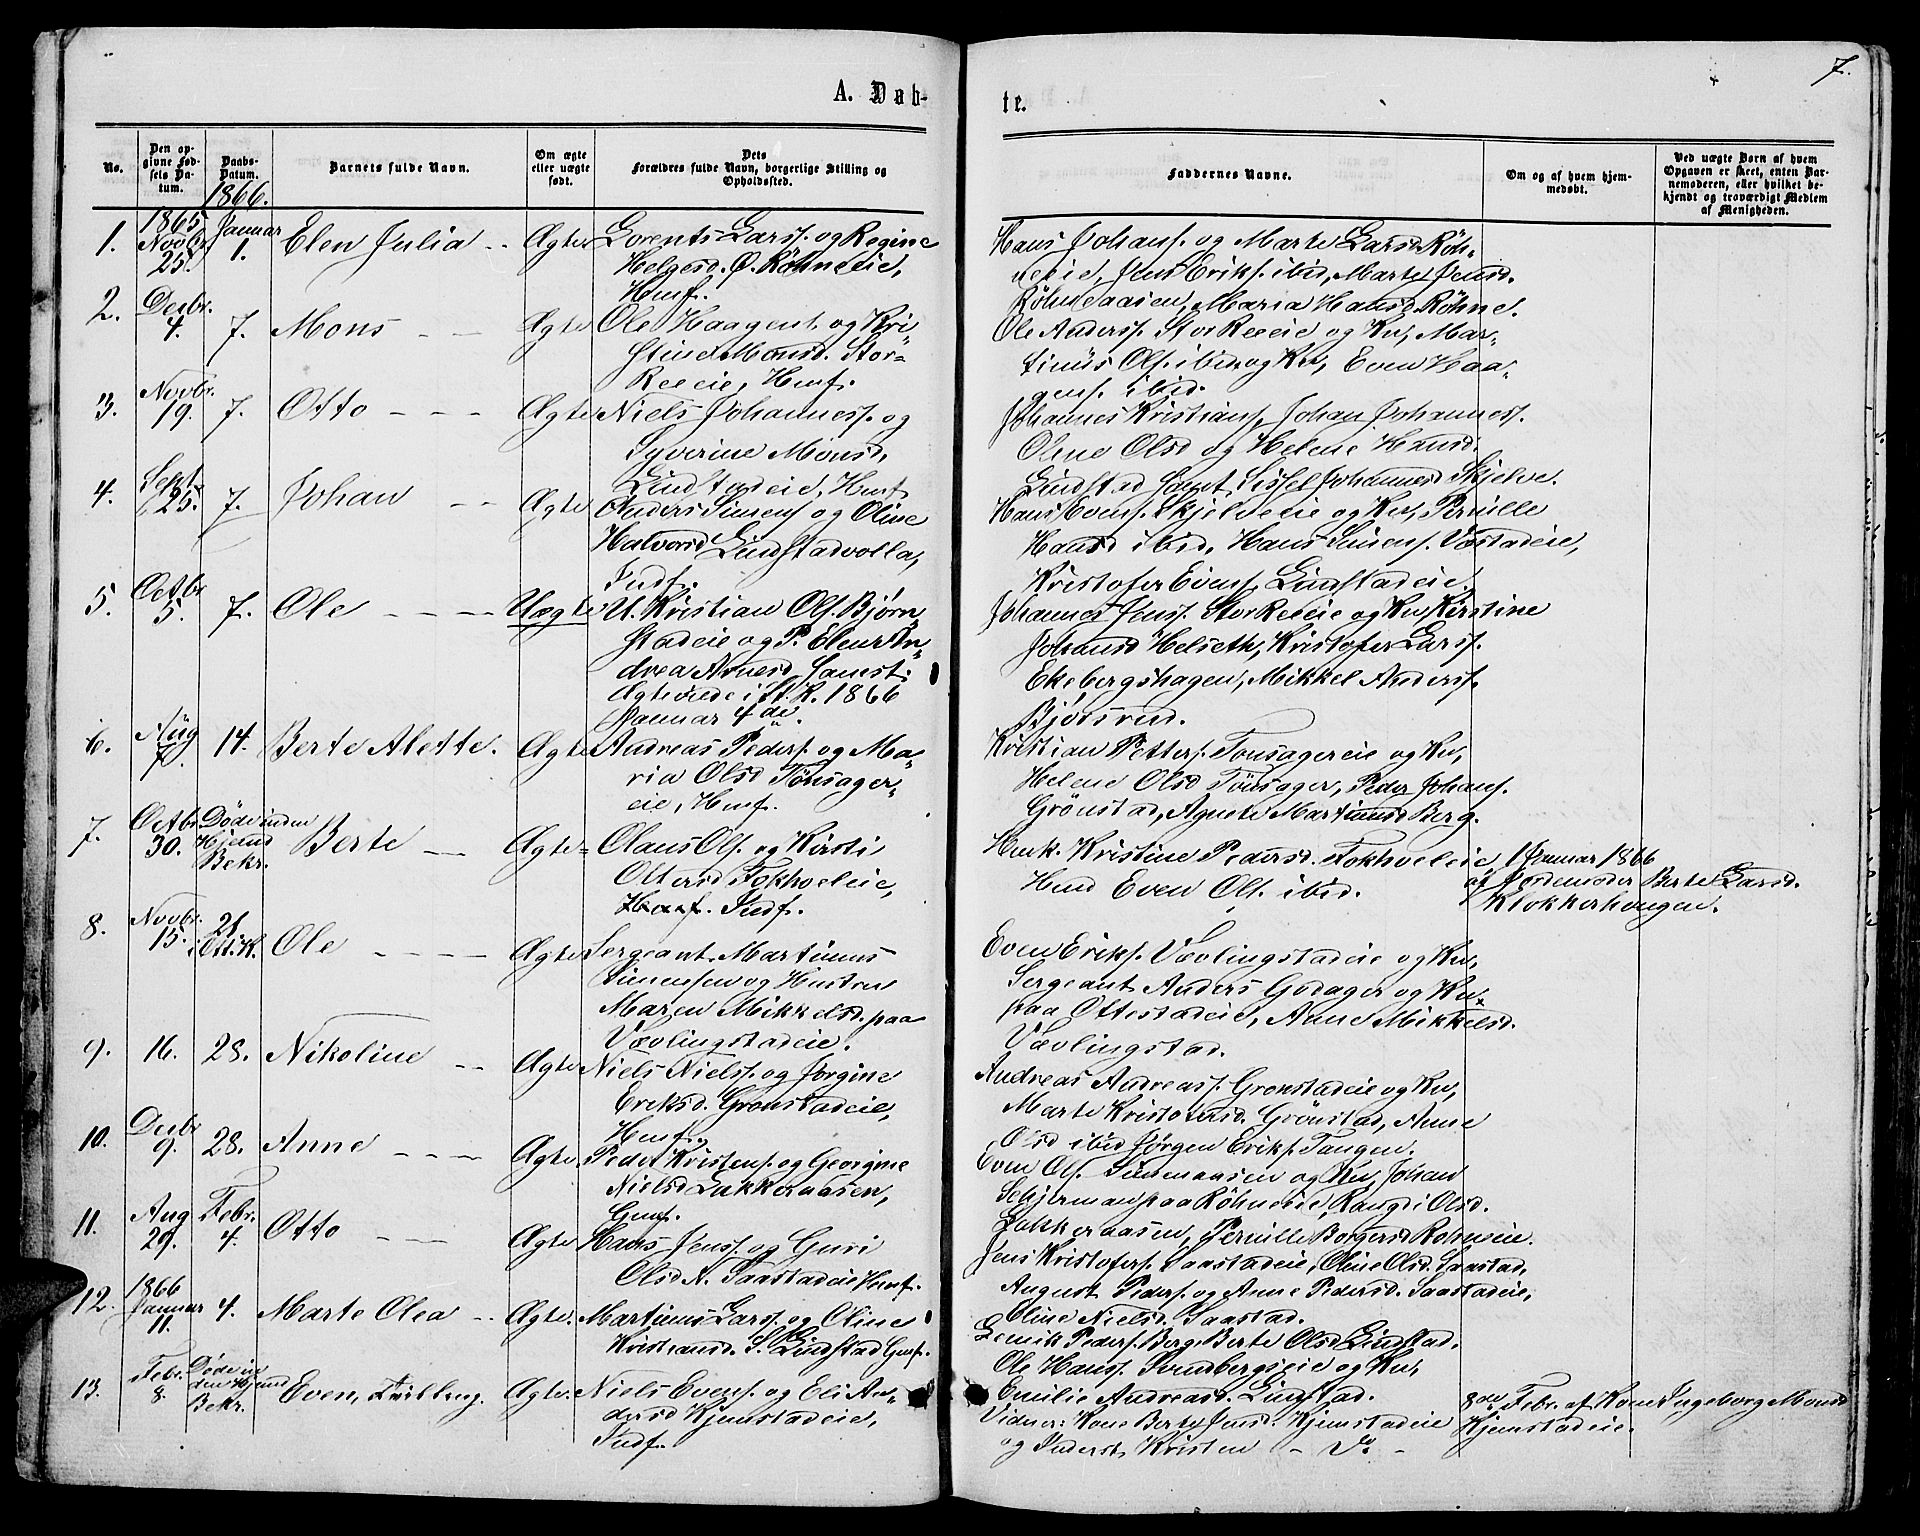 7.
A. Døb-
te.
No.
Den op-
givne Fød-
sels Da-
tum.
Daabs-
Datum.
1866.
Barnets fulde Navn.
Om ægte
eller uægte
født.
Dets
Forældres fulde Navn, borgerlige Stilling og
Opholdssted.
Faddernes Navne.
Om og af hvem hjem-
medøbt.
Ved uægte Børn af hvem
Opgaven er skeet, enten Bar-
nemoderen, eller hvilket be-
kjendt og troværdigt Medlem
af Menigheden.
1.
1865
Novbr.
25.
Januar
1.
Elen Julia
Ægte
Lorents Larss. og Regine
Helgesd. Ø. Röhneeie,
Hmf.
Hans Johans. og Marte Larsd. Röh-
neeie, Jens Eriks. ibid, Marte Jensd.
Röhneaasen, Maria Hansd. Röhne.
2.
Decbr.
4.
7.
Mons
Ægte
Ole Haagens. og Kri-
stine Monsd. Stor-
Reeeie, Hmf.
Ole Anders. StorReeeie og Kv, Mar-
tinus Ols. ibid. og Kv, Even Haa-
gens. ibid.
3.
Novbr.
19.
7.
Otto
Ægte
Niels Johanness. og
Syverine Monsd.
Lindstadeie, Hmf.
Johannes Kristians, Johan Johanness.
Olene Olsd og Helene Hansd.
Lindstad samt Sissel Johannesd Skjelve.
4.
Sept.
25.
7.
Johan
Ægte
Anders Simens. og Oline
Halvorsd Lindstadvolla,
Indf.
Hans Evens. Skjelveeie og Kv, Pernille
Hansd ibid, Hans Simens. Væstadeie,
Kristofer Evens. Lindstadeie.
5.
Octbr.
5.
7.
Ole
Uægte
U. Kristian Ols. Bjørn-
stadeie og P. Elen An-
drea Arnesd. samst.
Ægteviede i St. K. 1866
Januar 4de.
Johannes Jens. StorReeeie og Kv Kirstine
Johansd Helseth, Kristofer Larss.
Ekebergshagen, Mikkel Anders.
Bjørsrud.
6.
Aug
7.
14.
Berte Alette.
Ægte
Andreas Peders. og Ma-
ria Olsd Tönsager-
eie, Hmf.
Kristian Petters. Tonsagereie og Kv,
Helene Olsd Tönsager, Peder Johans.
Grönstad, Agnete Martinusd Berg.
7.
Octbr
30.
Døde inden
Hjemd
Bekr.
Berte
Ægte
Olaus Ols. og Kirsti
Ottersd Fokhveleie,
Indf.
Hmk. Kristine Pedersd. Fokhveleie
Hmd Even Ols. ibid.
1 Januar 1866
af Jordemoder Berte Larsd.
Klokkerhougen.
8.
Novbr.
15.
21
i Ott.K.
Ole
Ægte
Sergeant Martinus
Simensen og Hustru
Maren Mikkelsd. paa
Vævlingstadeie.
Even Eriks. Vævlingstadeie og Kv,
Sergeant Anders Godager og Kv
paa Ottestadeie, Anne Mikkelsd.
Vævlingstad.
9.
16.
28.
Nikoline
Ægte
Niels Nielss. og Jørgine
Eriksd. Gronstadeie,
Hmf.
Andreas Andreass. Gronstadeie og Kv,
Marte Kristofersd. Grönstad, Anne
Olsd ibid Jørgen Eriks. Tangen.
10.
Decbr
9.
28.
Anne
Ægte.
Peder Kristens. og Georgine
Nielsd Lakkeraasen,
Gmf.
Even Ols. og Kv, Johan
Schjerman paa Röhneeie, Rangdi Olsd.
Lakkeraasen, Pernille Borgersd Rohneeie.
11.
Aug
29.
Febr.
4.
Otto
Ægte
Hans Jens. og Guri
Olsd N. Saastadeie Hmf.
Jens Kristofers. Saastadeie, Oline Olsd. Saastad,
August Peders. og Anne Pedersd. Saastadeie,
Oline Nielsd. Saastad.
12.
1866
Januar
11.
4.
Marte Olea
Ægte.
Martinus Larss. og Oline
Kristiansd. S. Lindstad Gmf.
Lemik Peders. Berg, Berte Olsd Lindstad.
Ole Hans. Svendbergseie og Kv,
Emilie Andreasd. Lindstad.
13.
Febr.
8.
Døde in-
den Hjemd
Bekr.
Even, Tvilling.
Ægte.
Niels Evens. og Eli An-
dersd Kjemstadeie,
Indf.
Vidner: Kone Berte Jensd. Kjemstadeie
og Inderst Kristen - Do. -
8de Febr. af Kone Ingeborg Monsd
Kjemstadeie.